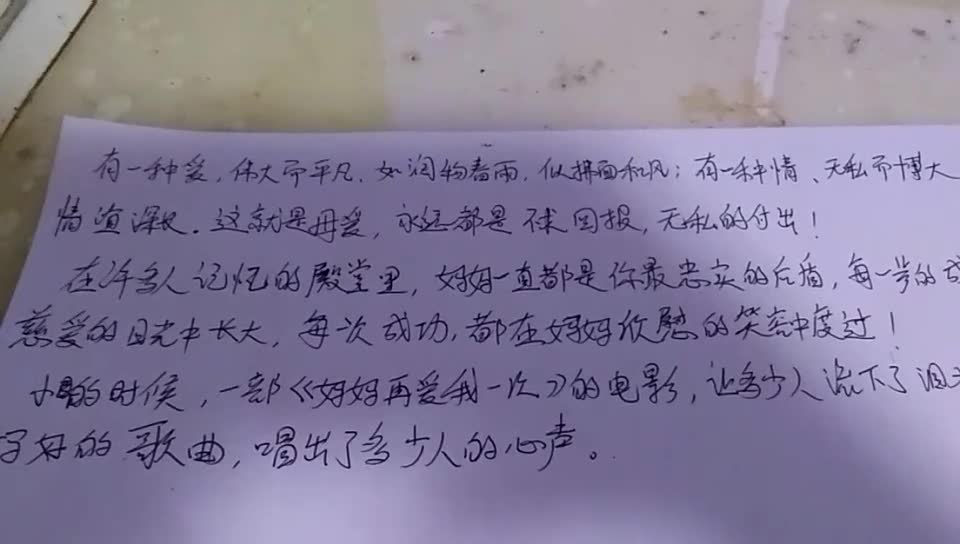 有一种爱,伟大而平凡.如润物春雨,似拂面和风;有一种情、无私而博大
情道深长.这就是母爱,永远都是不求回报,无私的付出!
在许多人记忆的殿堂里,妈妈一直都是你最忠实的后盾,每一步的成
慈爱的目光中长大,每次成功,都在妈妈欣慰的笑容中度过!
小的时候,一部《妈妈再爱我一次》的电影,让多少人流下了泪
好的歌曲,唱出了多少人的心声。